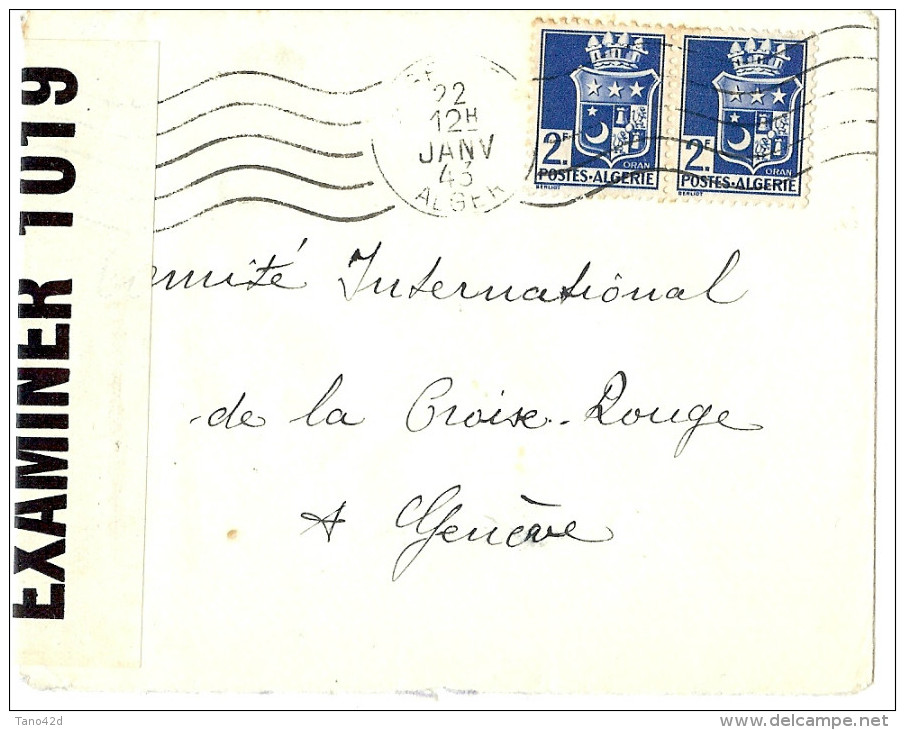 EXAMINER 1019
22
12H
JANV
43
ALGER
2F
ORAN
POSTES-ALGERIE
BERLIOT
2F
ORAN
POSTES-ALGERIE
BERLIOT
mité International
de la Croix-Rouge
A Genève
Tano42d
www.delcampe.net